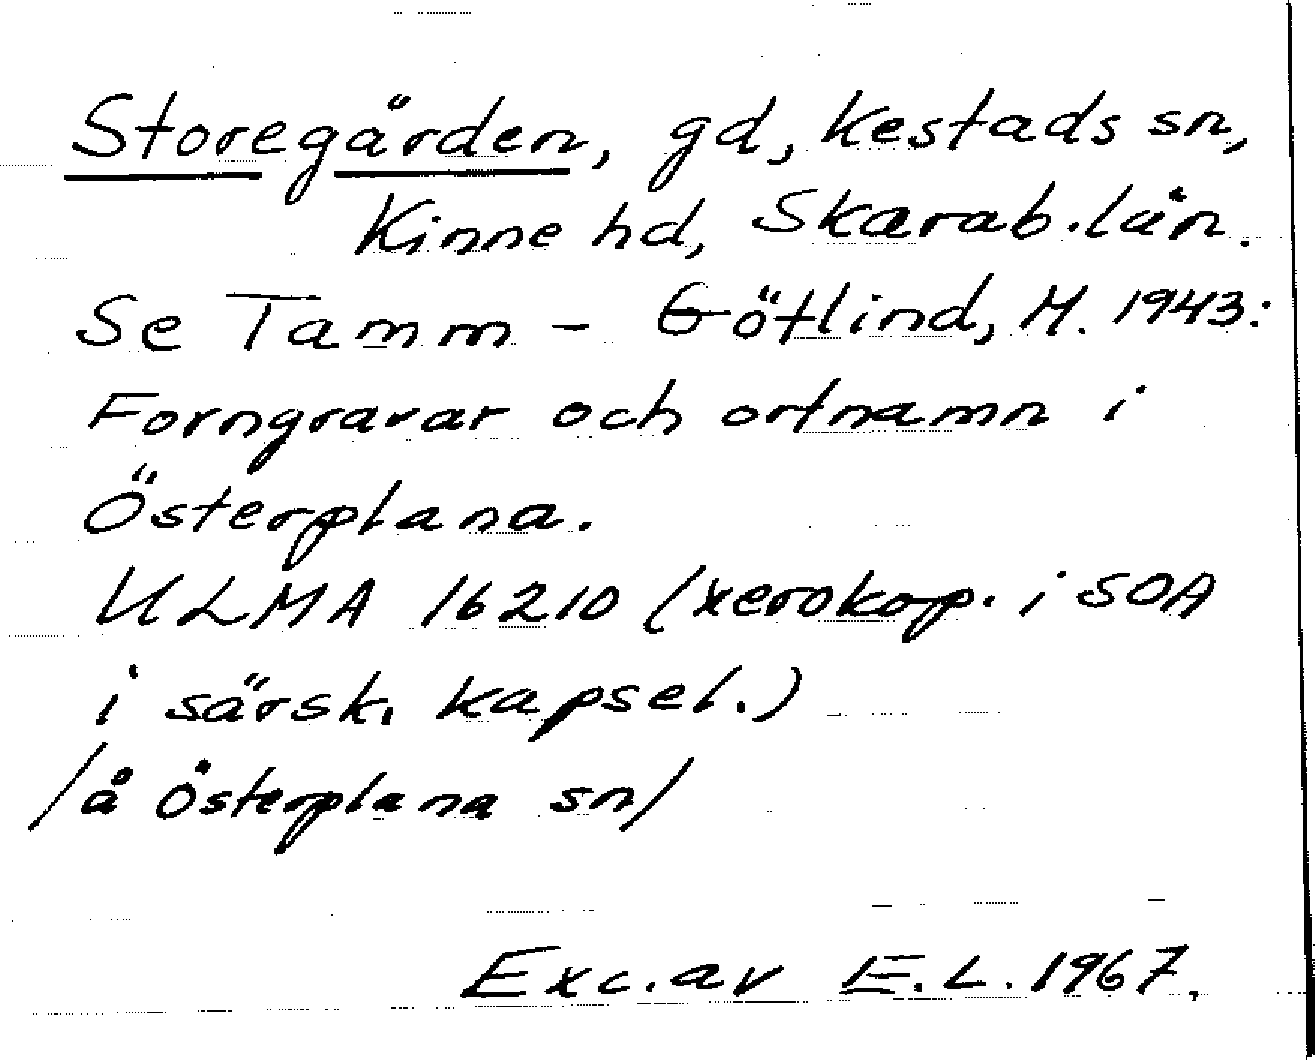 Storegården, gd, Kestads sn,
Kinne hd, Skarab. län.
Se Tamm - Götlind, M. 1943:
Forngravar och ortnamn i
Österplana.
ULMA 16210 (xerokop. i SOA
i särsk. kapsel.)
/å Österplana sn/
Exc. av E. L. 1967.